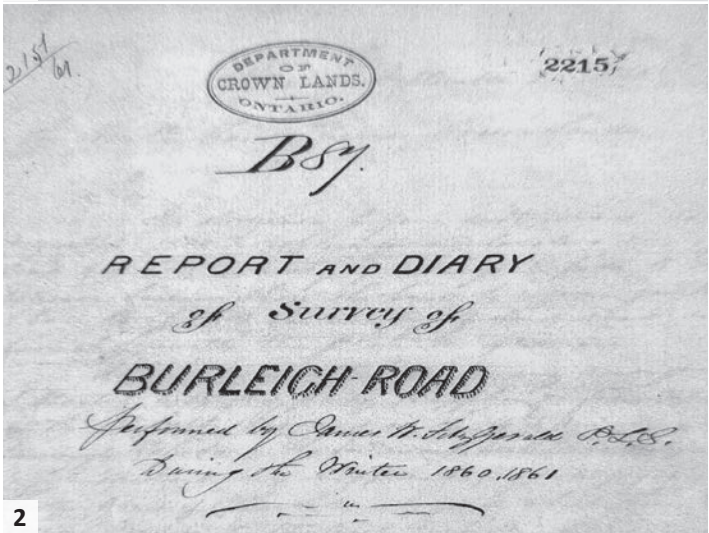 2151
61.
DEPARTMENT
OF
CROWN LANDS.
ONTARIO.
2215
B87.
REPORT AND DIARY
of Survey of
BURLEIGH ROAD
Performed by James W. Fitzgerald P.L.S.
During the Winter 1860.1861
2